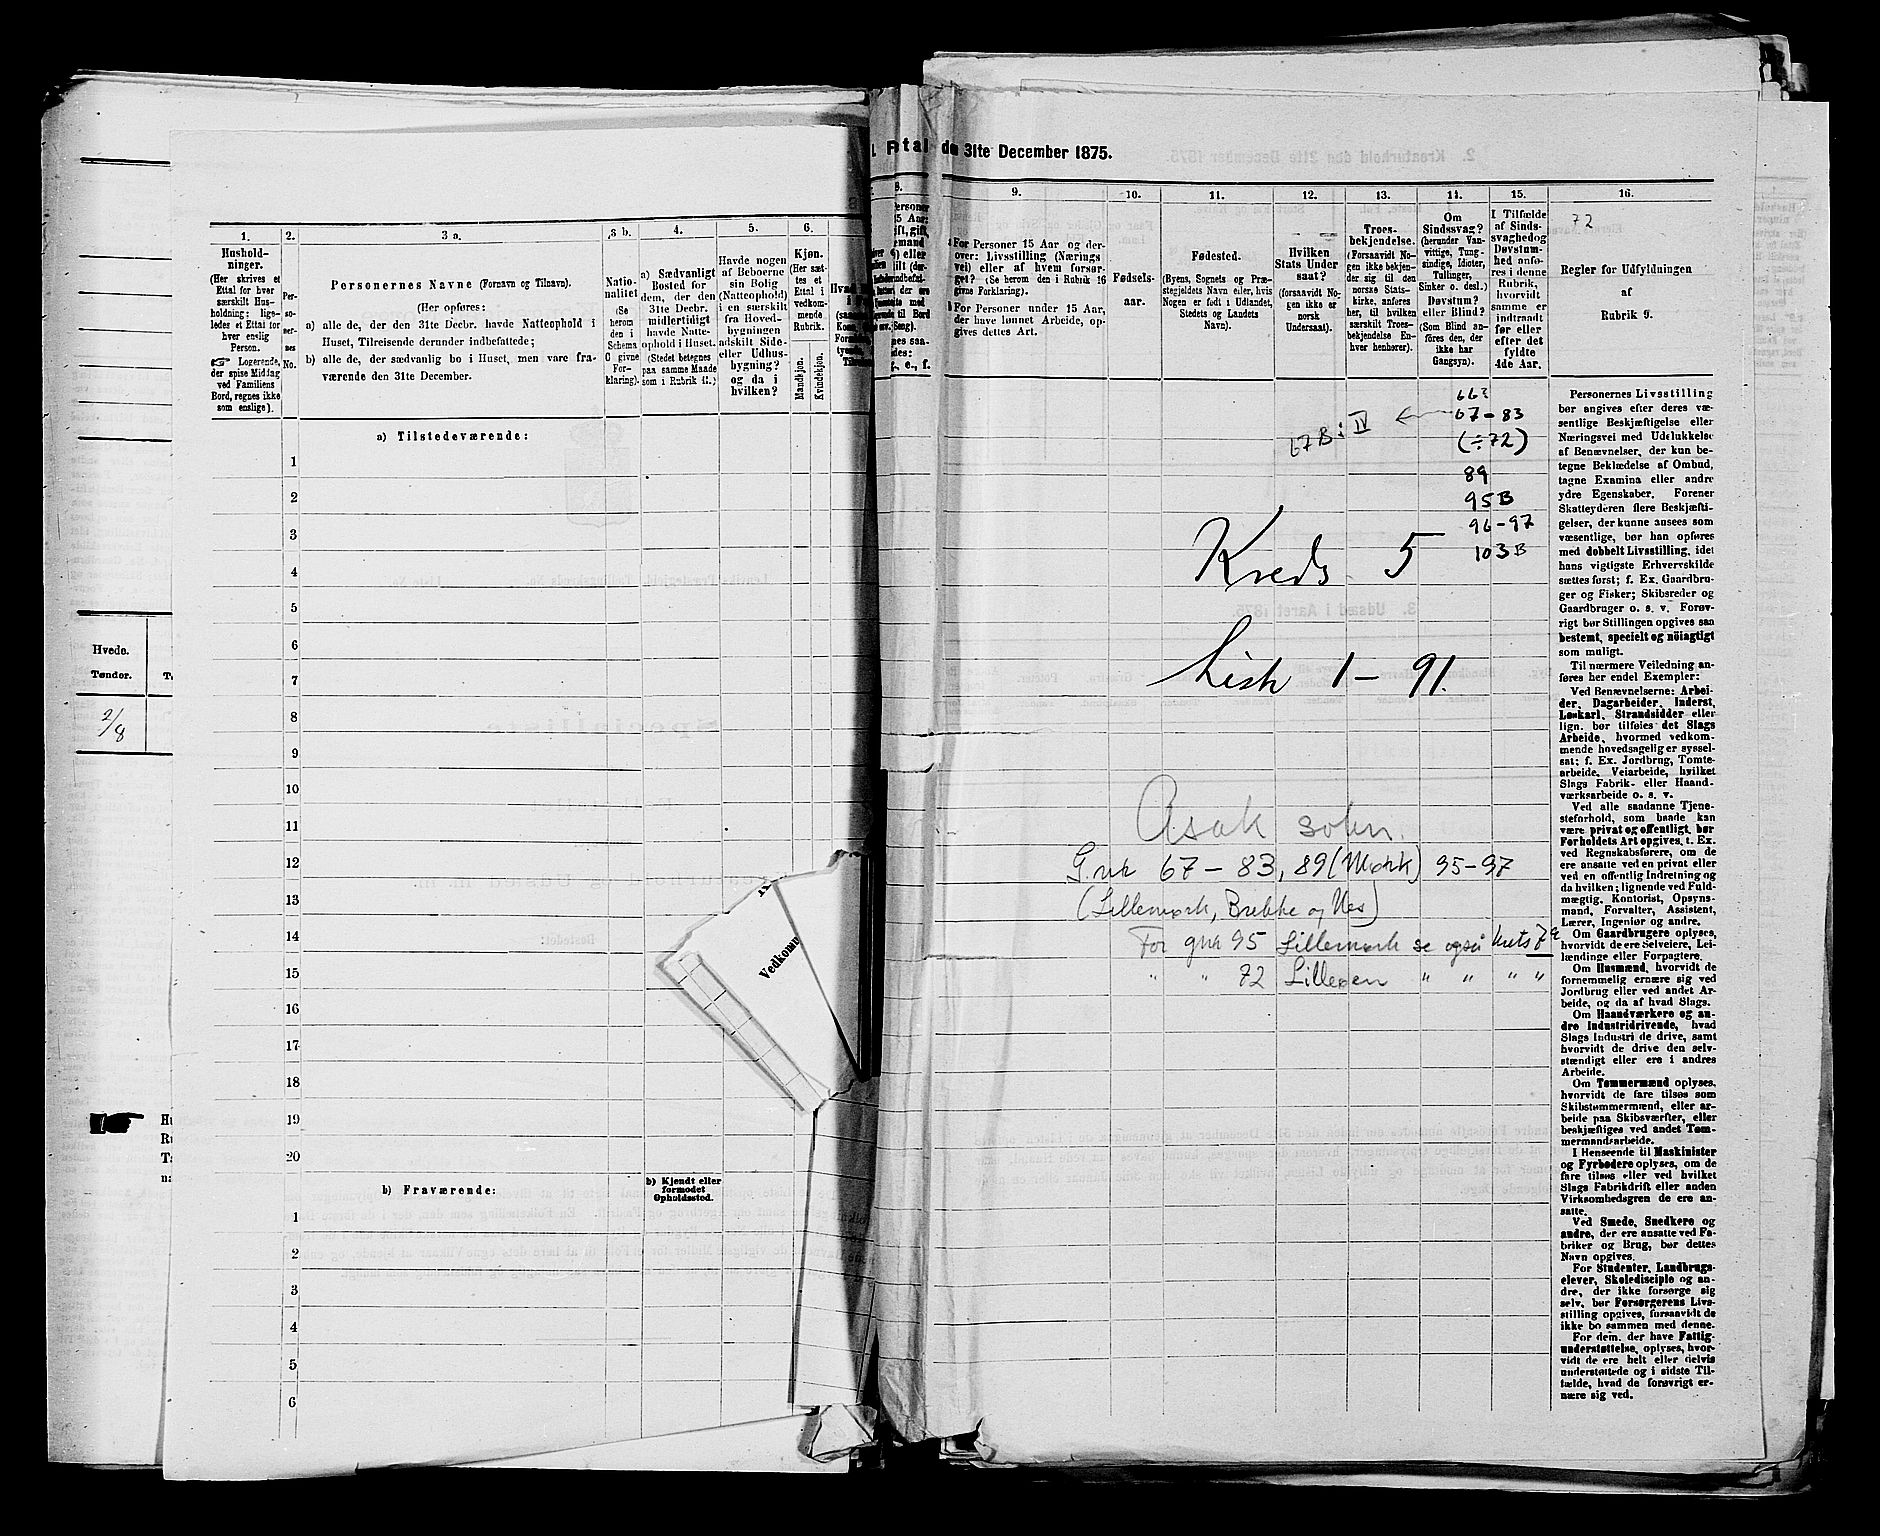 Hvede.
Tønder.
2/8
1.
Hushold-
ninger.
(Her skrives et
Ettal for hver
særskilt Hus-
holdning; lige-
ledes et Ettal for
hver enslig
Person.
Logerende,
der spise Middag
ved Familiens
Bord, regnes ikke
som enslige).
2.
Per-
so-
ner-
nes
No.
3 a.
Personernes Navne (Fornavn og Tilnavn).
(Her opføres:
a) alle de, der den 31te Decbr. havde Natteophold i
Huset, Tilreisende derunder indbefattede;
b) alle de, der sædvanlig bo i Huset, men vare fra-
værende den 31te December.
3 b.
Natio-
nalitet
(Se
herom
den i
Schema
C givne
For-
klaring).
4.
a) Sædvanligt
Bosted for
dem, der den
31te Decbr.
midlertidigt
havde Natte-
ophold i Huset.
(Stedet betegnes
paa samme Maade
som i Rubrik 11.)
5.
Havde nogen
af Beboerne
sin Bolig
(Natteophold)
i en særskilt
fra Hoved-
bygningen
adskilt Side-
eller Udhus-
bygning?
og da i
hvilken?
6.
Kjøn.
(Her sæt-
tes et
Ettal i
vedkom-
mende
Rubrik.
Mandkjøn.
Kvindekjøn.
a) Tilstedeværende:
1
2
3
4
5
6
7
8
9
10
11
12
13
14
15
16
17
18
19
20
b) Fraværende:
b) Kjendt eller
formodet
Opholdssted.
1
2
3
4
5
6
Vedkomm
31te December 1875.
8.
9.
For Personer 15 Aar og der-
over: Livsstilling (Nærings-
vei) eller af hvem forsør-
get? (Se herom den i Rubrik 16
givne Forklaring).
For Personer under 15 Aar,
der have lønnet Arbeide, op-
gives dettes Art.
10.
Fødsels-
aar.
11.
Fødested.
(Byens, Sognets og Præ-
stegjeldets Navn eller, hvis
Nogen er født i Udlandet,
Stedets og Landets
Navn).
12.
Hvilken
Stats Under
saat?
(forsaavidt No-
gen ikke er
norsk
Undersaat).
13.
Troes-
bekjendelse.
(Forsaavidt No-
gen ikke bekjen-
der sig til den
norske Stats-
kirke, anføres
her, til hvilken
særskilt Troes-
bekjendelse En-
hver henhører).
14.
Om
Sindssvag?
(herunder Van-
vittige, Tung-
sindige, Idioter,
Tullinger,
Sinker o. desl.)
Døvstum?
eller Blind?
(Som Blind an-
føres den, der
ikke har
Gangsyn).
15.
I Tilfælde
af Sinds-
svaghed og
Døvstum-
hed anfø-
res i denne
Rubrik,
hvorvidt
samme er
indtraadt
før eller
efter det
fyldte
4de Aar.
16.
72
Regler for Udfyldningen
af
Rubrik 9.
66?
67-83
(÷72)
67B: IV ←
89
95B
96-97
103B
Kreds 5
Liste 1 - 91.
Asak sokn.
G.nr 67 - 83, 89 (Mørk) 95-97
(Lillemørk, Brekke og Nes)
For gnr 95 Lillemørk se også krets 7a
" " 72 Lilleøen " " " "
Personernes Livsstilling
bør angives efter deres væ-
sentlige Beskjæftigelse eller
Næringsvei med Udelukkelse
af Benævnelser, der kun be-
tegne Beklædelse af Ombud,
tagne Examina eller andre
ydre Egenskaber. Forener
Skatteyderen flere Beskjæfti-
gelser, der kunne ansees som
væsentlige, bør han opføres
med dobbelt Livsstilling, idet
hans vigtigste Erhvervskilde
sættes først; f. Ex. Gaardbru-
ger og Fisker; Skibsreder og
Gaardbruger o. s. v. Forøv-
rigt bør Stillingen opgives saa
bestemt, specielt og nöiagtigt
som muligt.
Til nærmere Veiledning an-
føres her endel Exempler:
Ved Benævnelserne: Arbei-
der, Dagarbeider, Inderst,
Løskarl, Strandsidder eller
lign. bør tilføies det Slags
Arbeide, hvormed vedkom-
mende hovedsagelig er syssel-
sat; f. Ex. Jordbrug, Tomte-
arbeide, Veiarbeide, hvilket
Slags Fabrik- eller Haand-
værksarbeide o. s. v.
Ved alle saadanne Tjene-
steforhold, som baade kan
være privat og offentligt, bør
Forholdets Art opgives, t. Ex.
ved Regnskabsførere, om de
ere ansatte ved en privat eller
ved en offentlig Indretning og
da hvilken; lignende ved Fuld-
mægtig, Kontorist, Opsyns-
mand, Forvalter, Assistent,
Lærer, Ingeniør og andre.
Om Gaardbrugere oplyses,
hvorvidt de ere Selveiere, Lei-
lændinge eller Forpagtere.
Om Husmænd, hvorvidt de
fornemmelig ernære sig ved
Jordbrug eller ved andet Ar-
beide, og da af hvad Slags.
Om Haandværkere og an-
dre Industridrivende, hvad
Slags Industri de drive, samt
hvorvidt de drive den selv-
stændigt eller ere i andres
Arbeide.
Om Tømmermænd oplyses,
hvorvidt de fare tilsøs som
Skibstømmermænd, eller ar-
beide paa Skibsværfter, eller
beskjæftiges ved andet Tøm-
mermandsarbeide.
I Henseende til Maskinister
og Fyrbødere oplyses, om de
fare tilsøs eller ved hvilket
Slags Fabrikdrift eller anden
Virksomhedsgren de ere an-
satte.
Ved Smede, Snedkere og
andre, der ere ansatte ved Fa-
briker og Brug, bør dettes
Navn opgives.
For Studenter, Landbrugs-
elever, Skoledisciple og an-
dre, der ikke forsørge sig
selv, bør Forsørgerens Livs-
stilling opgives, forsaavidt de
ikke bo sammen med denne.
For dem, der have Fattig-
understøttelse, oplyses, hvor-
vidt de ere helt eller delvis
understøttede og i sidste Til-
fælde, hvad de forøvrigt er-
nære sig ved.